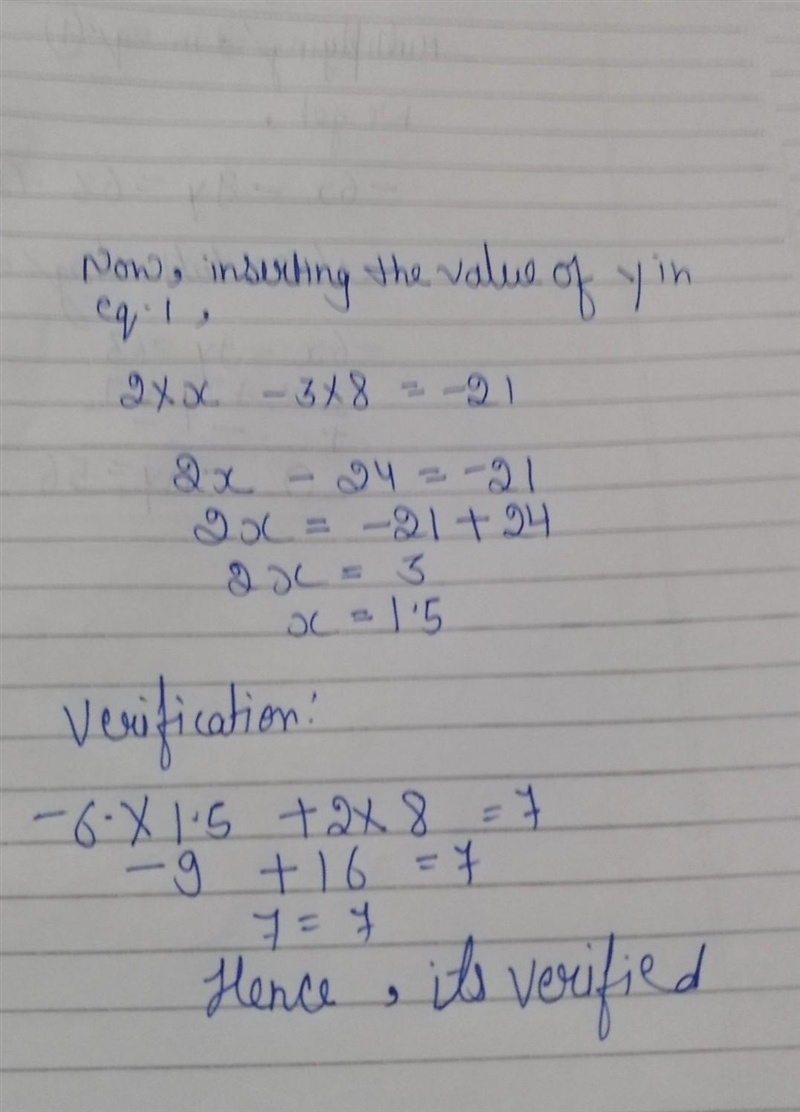 Now, inserting the value of y in
eq.1,
2×x - 3×8 = -21
2x - 24 = -21
2x = -21 + 24
2x = 3
x = 1.5
Verification:
-6×1.5 + 2×8 = 7
-9 + 16 = 7
7 = 7
Hence, its verified